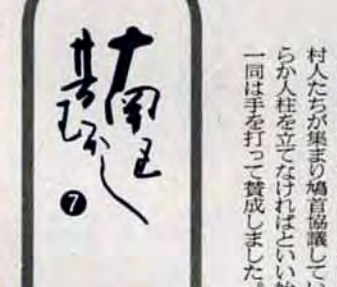 村人たちが集まり鳩首協議してい
らか人柱を立てなければといい始
一同は手を打って賛成しました。
昔むかし
❼